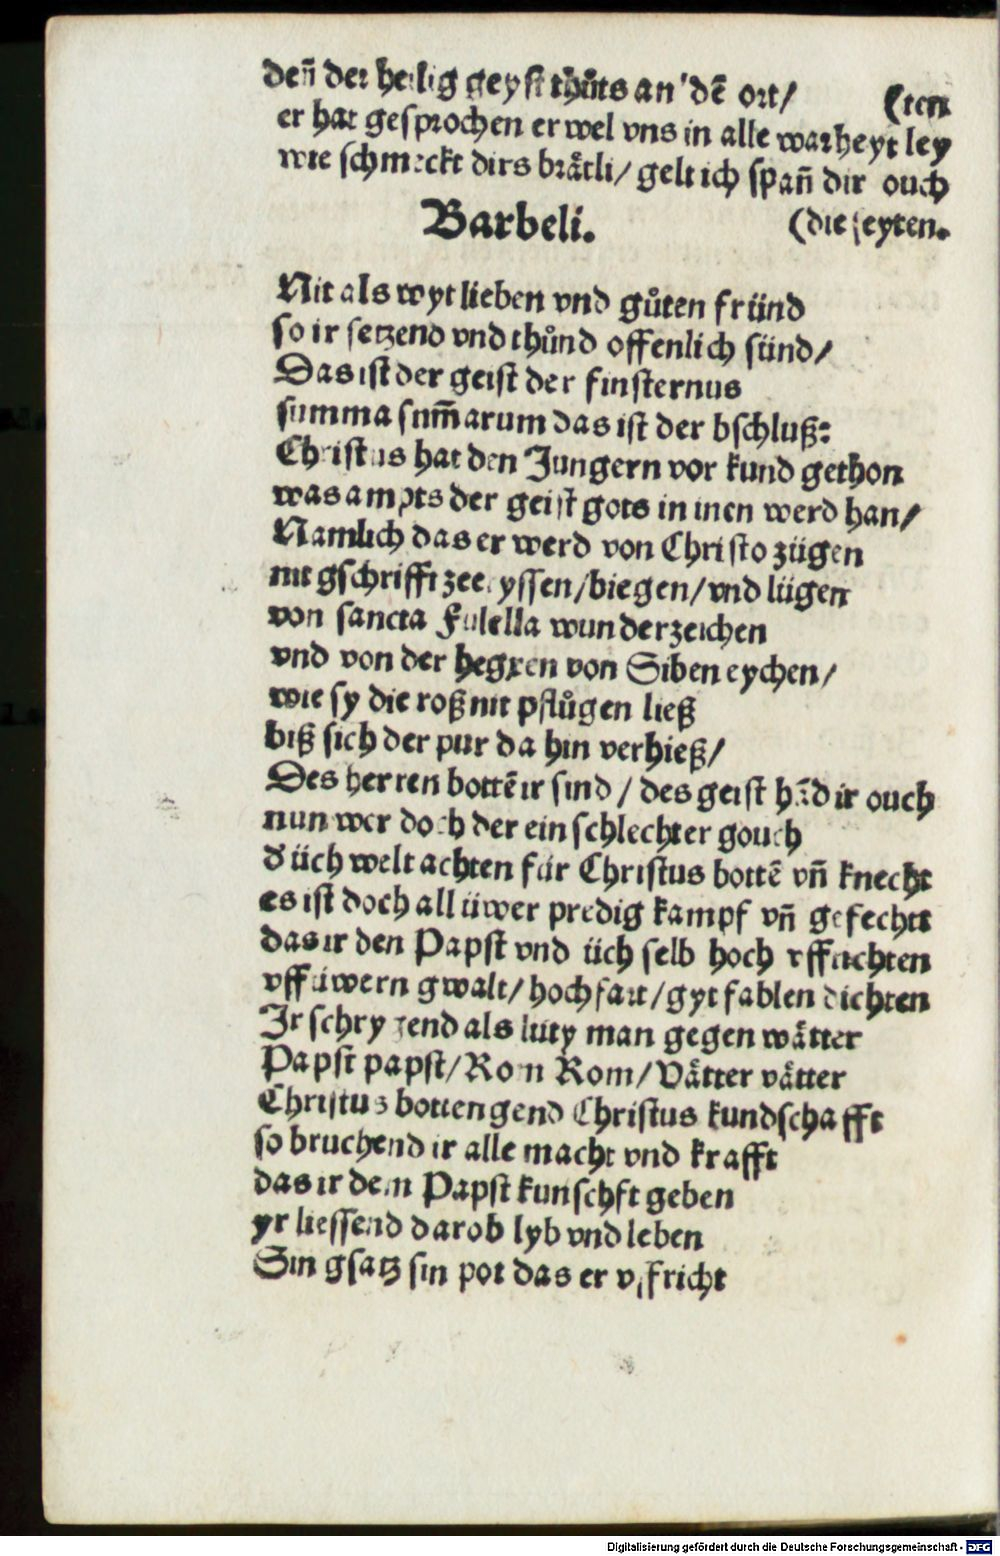 deñ der heilig geyst thůts an dē ort/ (ten
er hat gesprochen er wel vns in alle warheyt ley
wie schmeckt dirs brätli/ gelt ich spañ dir ouch
Barbeli. (die seyten.
Nit als wyt lieben vnd gůten fründ
so ir setzend vnd thůnd offenlich sünd/
Das ist der geist der finsternus
summa sum̄arum das ist der bschluß:
Christus hat den Jungern vor kund gethon
was ampts der geist gots in inen werd han/
Namlich das er werd von Christo zügen
nit gschrifft yssen/biegen/vnd lügen
von sancta wunderzeichen
vnd von der hegxen von Siben eychen/
wie sy die roß mit pflůgen ließ
biß sich der pur da hin verhieß/
Des herren bottē ir sind/ des geist hād ir ouch
nun wer doch der ein schlechter gouch
d'üch welt achten für Christus bottē vñ knecht
es ist doch all üwer predig kampf vñ gefecht
das ir den Papst vnd üch selb hoch vffrichten
vff üwern gwalt/hochfart/gyt fablen dichten
Ir schryend als luty man gegen wätter
Papst papst/Rom Rom/Vätter vätter
Christus botten gend Christus kundschafft
so bruchend ir alle macht vnd krafft
das ir dem Papst kunschft geben
yr liessend darob lyb vnd leben
Sin gsatz sin pot das er vffricht
Digitalisierung gefördert durch die Deutsche Forschungsgemeinschaft - DFG